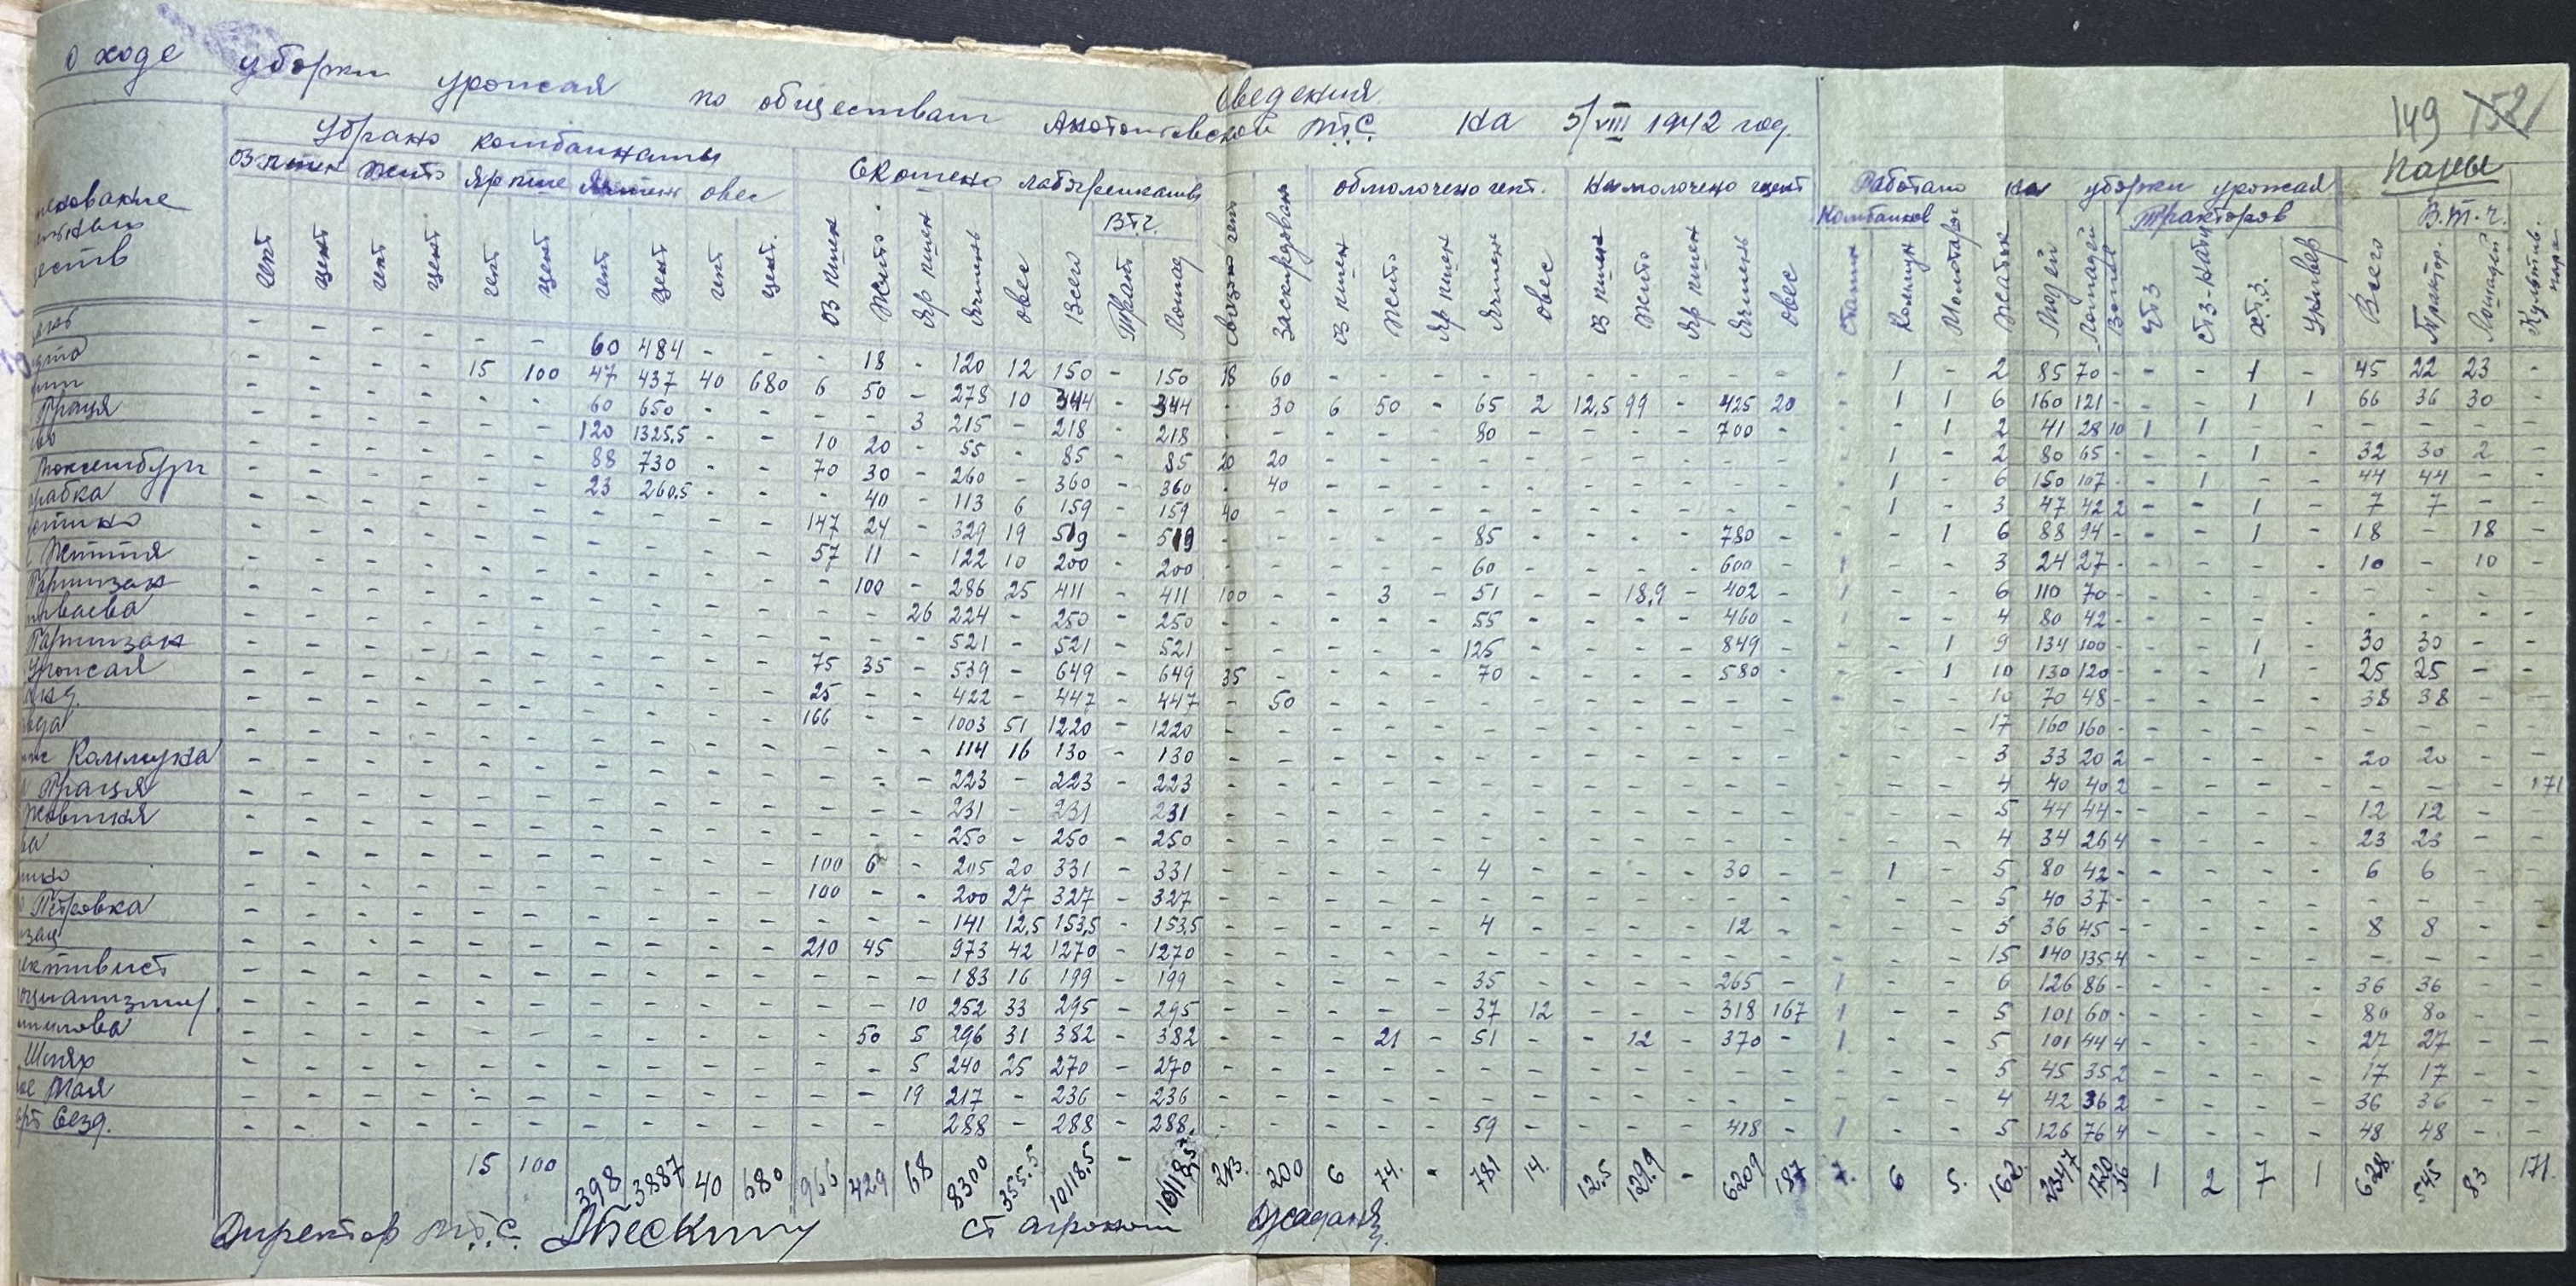 Сведения
о ходе уборки урожая по обществам МТС на 5/VIII 1942 год
149 152
Убрано комбайнами
Скошено лобогрейками
обмолочено гект.
Намолочено цент
Работало на уборки урожая
Пары
оз пшен жито яр пше Ячмен овес
В т.ч.
Комбайнов
Тракторов
В.т.ч.
гект цент гект цент гект цент гект цент гект цент.
оз пшен Жито Яр пшен Ячмень овес Всего Тракт Лошад
Заскирдован
оз пшен Жито Яр пшен Ячмен овес
оз пшен Жито Яр пшен Ячмень овес
Сталин Комунар Молотары Жаток Людей Лошадей Волов ЧТЗ СТЗ-Нати ХТЗ. Универ
Всего Трактор. Лошадей Культив. пара
- - - - - - 60 484 - - - 18 - 120 12 150 - 150 18 60 - - - - - - - - - - - 1 - 2 85 70 - - - 1 - 45 22 23 -
- - - - 15 100 47 437 40 680 6 50 - 278 10 344 - 344 - 30 6 50 - 65 2 12,5 99 - 425 20 - 1 1 6 160 121 - - - 1 1 66 36 30 -
- - - - - - 60 650 - - - - 3 215 - 218 - 218 - - - - - 80 - - - - 700 - - - 1 2 41 28 10 1 1 - - - - - -
Праця - - - - - - 120 1325,5 - - 10 20 - 55 - 85 - 85 20 20 - - - - - - - - - - - 1 - 2 80 65 - - - 1 - 32 30 2 -
- - - - - - 88 730 - - 70 30 - 260 - 360 - 360 - 40 - - - - - - - - - - - 1 - 6 150 107 - - 1 - - 44 44 - -
Люксембург - - - - - - 23 260,5 - - - 40 - 113 6 159 - 159 40 - - - - - - - - - - - - 1 - 3 47 42 2 - - 1 - 7 7 - -
- - - - - - - - - - 147 24 - 329 19 519 - 519 - - - - - 85 - - - - 780 - - - 1 6 88 94 - - - 1 - 18 - 18 -
- - - - - - - - - - 57 11 - 122 10 200 - 200 - - - - - 60 - - - - 600 - 1 - - 3 24 27 - - - - - 10 - 10 -
Життя - - - - - - - - - - - 100 - 286 25 411 - 411 100 - - 3 - 51 - - 18,9 - 402 - 1 - - 6 110 70 - - - - - - - - -
Партизан - - - - - - - - - - - - 26 224 - 250 - 250 - - - - - 55 - - - - 460 - 1 - - 4 80 42 - - - - - - - - -
- - - - - - - - - - - - - 521 - 521 - 521 - - - - - 125 - - - - 849 - - - 1 9 134 100 - - - 1 - 30 30 - -
Партизан - - - - - - - - - - 75 35 - 539 - 649 - 649 35 - - - - 70 - - - - 580 - - - 1 10 130 120 - - - 1 - 25 25 - -
Урожая - - - - - - - - - - 25 - - 422 - 447 - 447 - 50 - - - - - - - - - - - - - 10 70 48 - - - - - 38 38 - -
- - - - - - - - - - 166 - - 1003 51 1220 - 1220 - - - - - - - - - - - - - - - 17 160 160 - - - - - - - - -
- - - - - - - - - - - - - 114 16 130 - 130 - - - - - - - - - - - - - - - 3 33 20 2 - - - - 20 20 - -
Коммуна - - - - - - - - - - - - - 223 - 223 - 223 - - - - - - - - - - - - - - - 4 40 40 2 - - - - - - - 171
Праця - - - - - - - - - - - - - 231 - 231 - 231 - - - - - - - - - - - - - - - 5 44 44 - - - - - 12 12 - -
Жовтня - - - - - - - - - - - - - 250 - 250 - 250 - - - - - - - - - - - - - - - 4 34 26 4 - - - - 23 23 - -
- - - - - - - - - - 100 6 - 205 20 331 - 331 - - - - - 4 - - - - 30 - - 1 - 5 80 42 - - - - - 6 6 - -
- - - - - - - - - - 100 - - 200 27 327 - 327 - - - - - - - - - - - - - - - 5 40 37 - - - - - - - - -
Петровка - - - - - - - - - - - - - 141 12,5 153,5 - 153,5 - - - - - 4 - - - - 12 - - - - 5 36 45 - - - - - 8 8 - -
- - - - - - - - - - 210 45 - 973 42 1270 - 1270 - - - - - - - - - - - - - - - 15 140 135 4 - - - - - - - -
- - - - - - - - - - - - - 183 16 199 - 199 - - - - - 35 - - - - 265 - 1 - - 6 126 86 - - - - - 36 36 - -
- - - - - - - - - - - - 10 252 33 295 - 295 - - - - - 37 12 - - - 318 167 1 - - 5 101 60 - - - - - 80 80 - -
- - - - - - - - - - - 50 5 296 31 382 - 382 - - - 21 - 51 - - 12 - 370 - 1 - - 5 101 44 4 - - - - 27 27 - -
Шлях - - - - - - - - - - - - 5 240 25 270 - 270 - - - - - - - - - - - - - - - 5 45 35 2 - - - - 17 17 - -
Мая - - - - - - - - - - - - 19 217 - 236 - 236 - - - - - - - - - - - - - - - 4 42 36 2 - - - - 36 36 - -
Сезд. - - - - - - - - - - - - - 288 - 288 - 288 - - - - - 59 - - - - 418 - 1 - - 5 126 76 4 - - - - 48 48 - -
15 100 398 3887 40 680 966 429 68 8300 355.5 10118,5 - 10118,5 213. 200 6 74. - 781 14. 12,5 129,9 - 6209 187 7. 6 5. 162. 2347 1720 36 1 2 7 1 628. 545 83 171.
Директор М.Т.С. Ст агроном